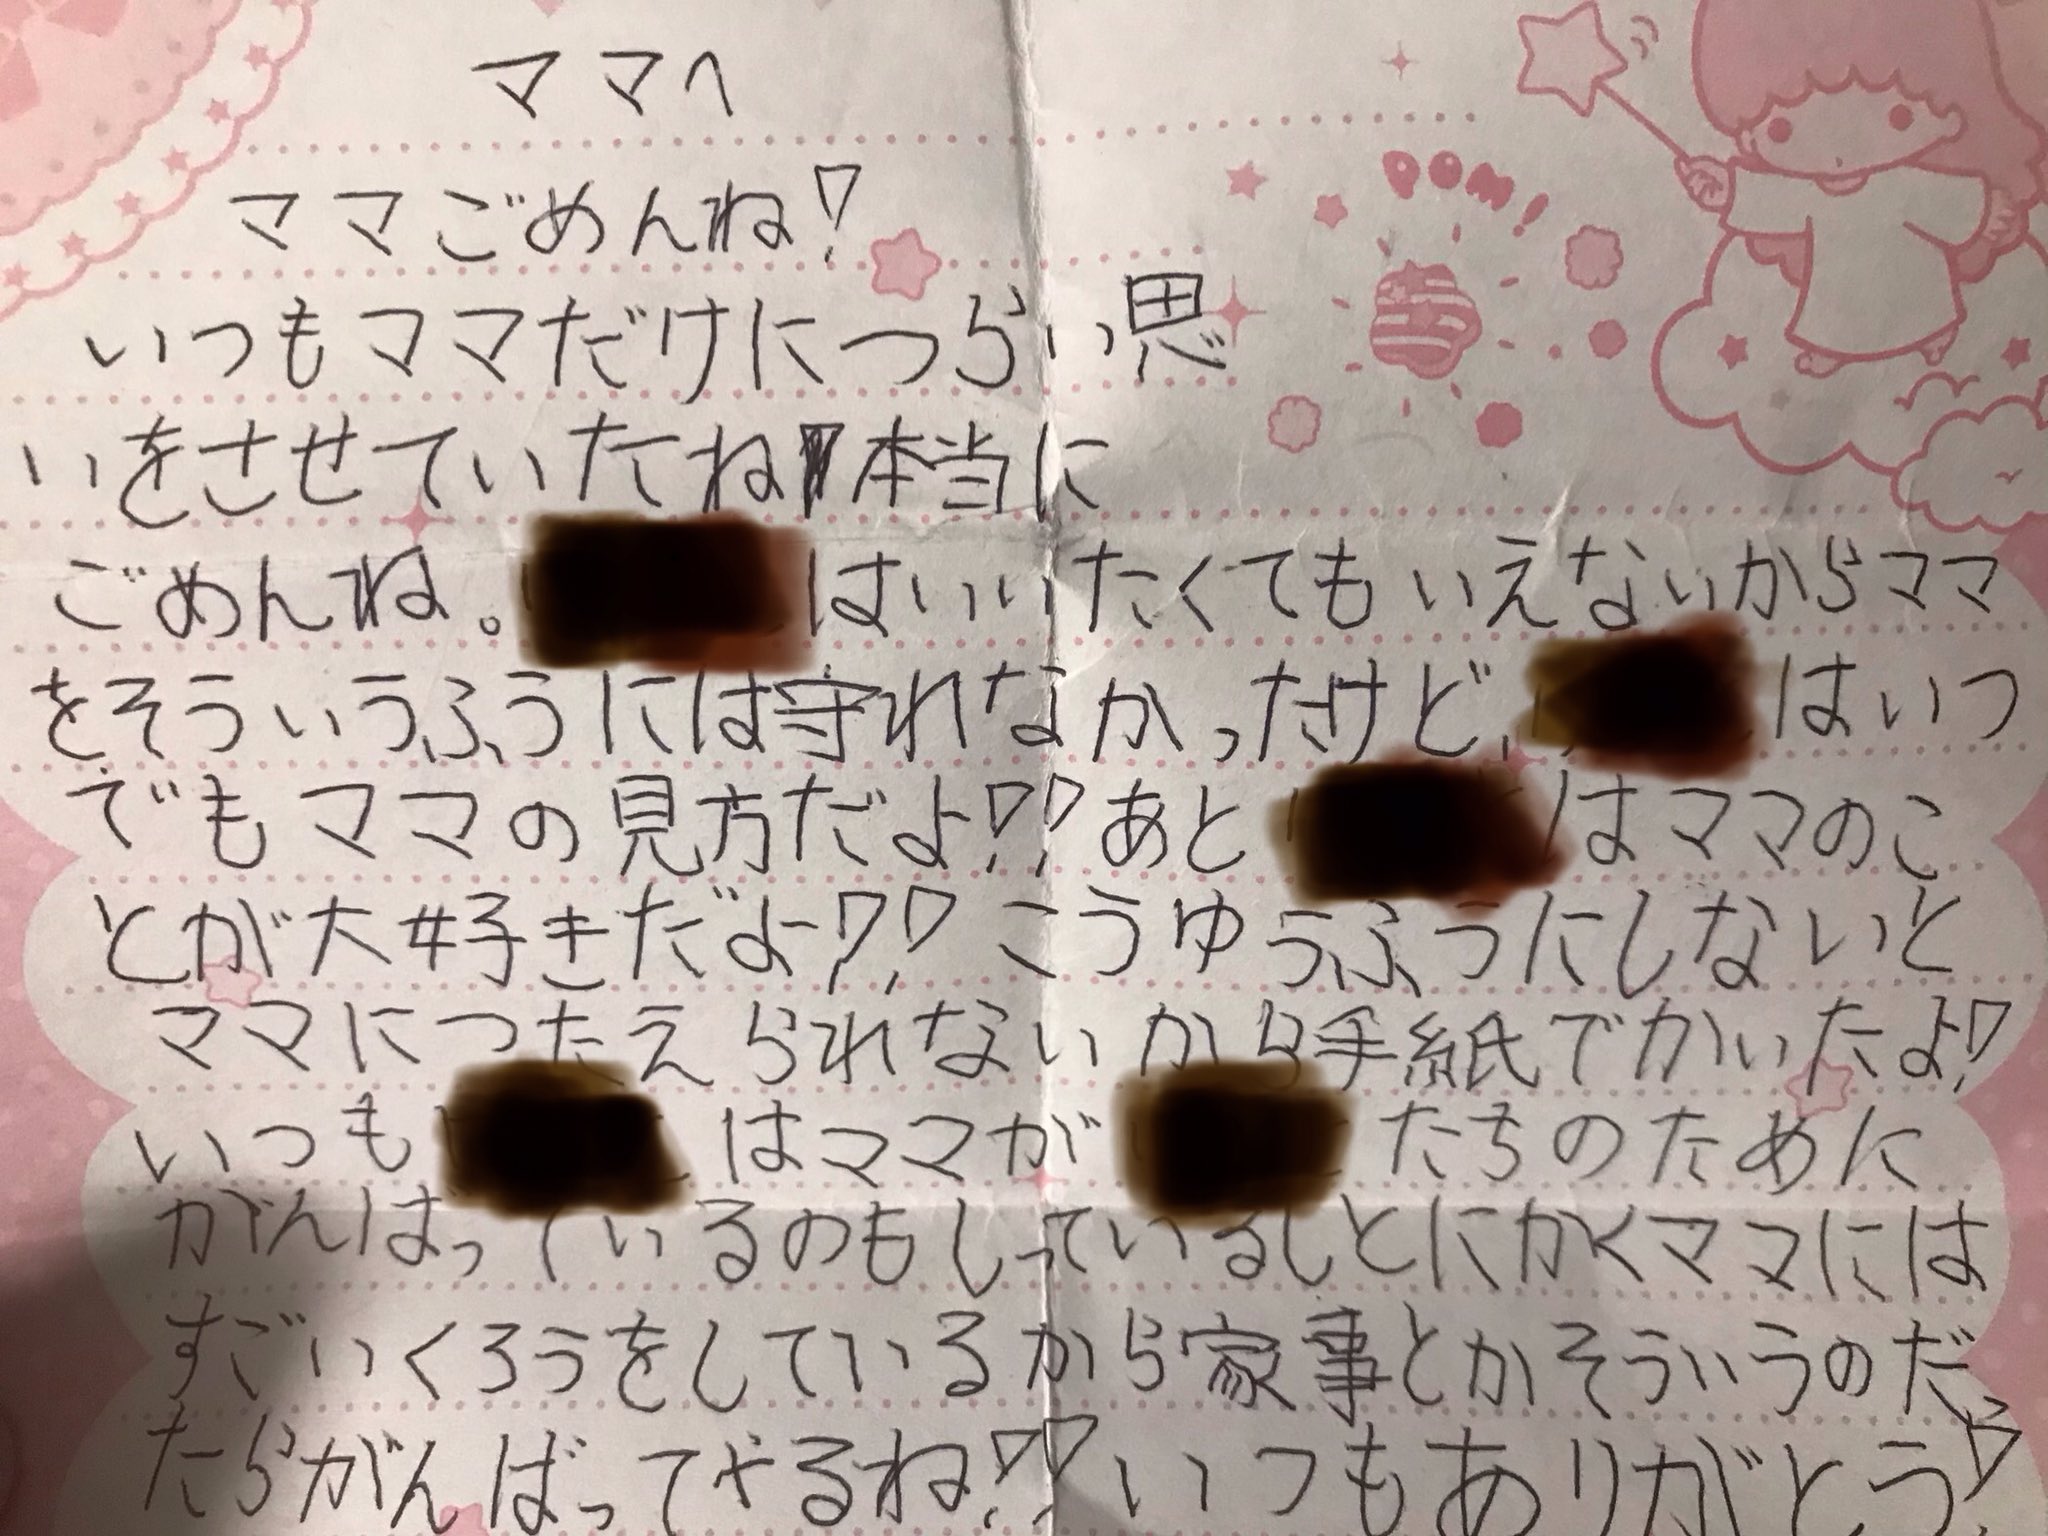 ママへ
ママごめんね!
POM!
いつもママだけにつらい思
いをさせていたね!本当に
ごめんね。はいいたくてもいえないからママ
をそういうふうには守れなかったけど、はいつ
でもママの見方だよ!!あとはママのこ
とが大好きだよ!!こうゆうふうにしないと
ママにつたえられないから手紙でかいたよ!
いつもはママがたちのために
がんばっているのもしっているしとにかくママには
すごいくろうをしているから家事とかそういうのだっ
たらがんばってやるね!!いつもありがとう!